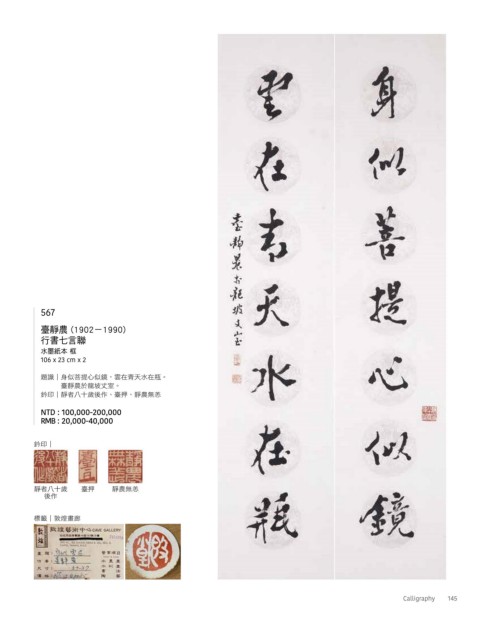 身似菩提心似鏡
雲在青天水在瓶
臺靜農於龍坡丈室
567
臺靜農 (1902－1990)
行書七言聯
水墨紙本 框
106 x 23 cm x 2
題識｜身似菩提心似鏡，雲在青天水在瓶。
臺靜農於龍坡丈室。
鈐印｜靜者八十歲後作、臺押、靜農無恙
NTD : 100,000-200,000
RMB : 20,000-40,000
鈐印｜
靜者八十歲後作
臺押
靜農無恙
標籤｜敦煌畫廊
敦煌藝術中心
Calligraphy 145